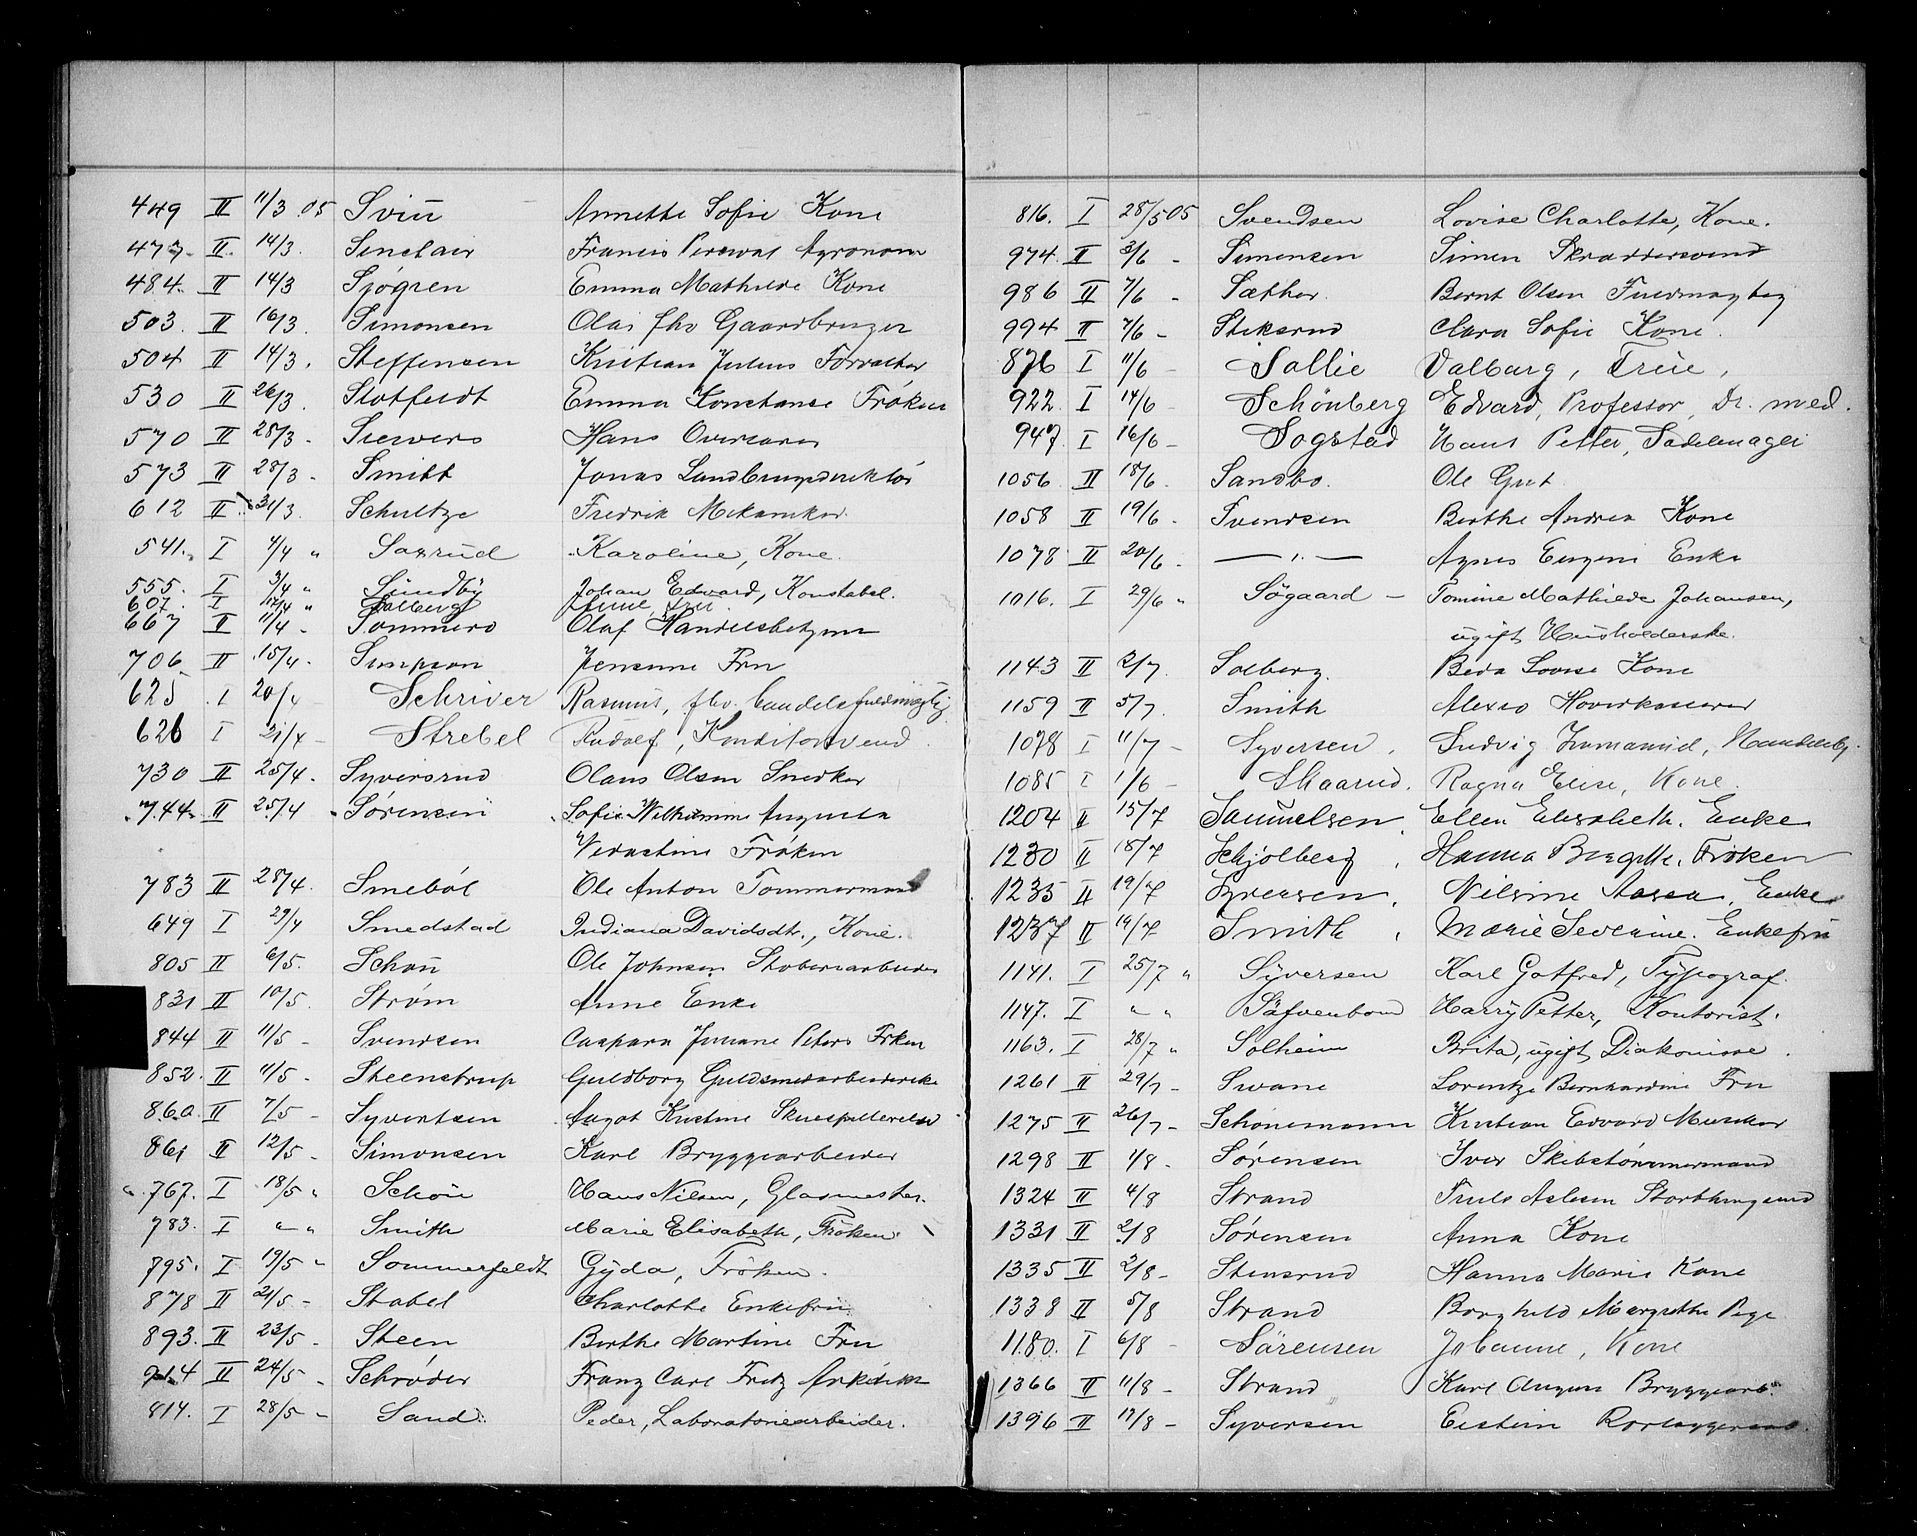 449 II 11/3 05 Sviu Annette Sofie Kone
477. II. 14/3. Sinclair Francis Perceval Agronom
484. II 14/3 Sjøgren Emma Mathilde Kone
503. II 16/3. Simonsen Olai fhv Gaardbruger
504 II 14/3. Steffensen Kristian Julius Forvalter
530 II 26/3. Stotfeldt Emma Konstance Frøken
570 II 28/3. Sievers Hans
573 II 28/3. Smitt Jonas Landbrugsdirektør
612 II 31/3. Schultze Fredrik Mekaniker
541. I 4/4 " Saxrud Karoline, Kone.
555. I 3/4 " Sundby Johan Edvard, Konstabel.
607. I 10/4 " Solberg
667 II 11/4. Sommero Olaf Handelsbetjent
706 II 15/4. Simpson Jensine Fru
625 I 20/4 Schriver Rasmus, fhv. Handelsfuldmægtig
626 I 21/4 - Strebel Rudolf, Konditorsvend
730 II 25/4. Syversrud Olaus Olsen Snedker
744. II 25/4 Sørensen Sofie Wilhelmine Augusta
Frøken
783 II 28/4. Smebøl Ole Anton Tømmermand
649 I 29/4 Smedstad Indiana Davidsdt., Kone.
805 II 6/5. Schou Ole Johnsen Støberiarbeider
831 II 10/5. Strøm Anne Enke
844 II 11/5 - Svendsen Caspara Juliane Peters Frken
852. II 11/5 - Steenstrup Guldborg Guldsmedarbeiderske
860. II 7/5 - Syvertsen Aagot Kristine Skuespillerelev
861 II 12/5 - Simonsen Karl Bryggearbeider
767. I 18/5 " Schou Hans Nilsen, Glasmester.
783. I " " Smith Marie Elisabeth, Frøken.
795. I 19/5 " Sommerfeldt Gyda, Frøken.
878 II 21/5 - Stabel Charlotte Enkefru
893. II 23/5 - Steen Berthe Martine Fru
914 II 24/5 - Schrøder Franz Carl Fritz Arkitekt
814. I 28/5 - Sand. Peder, Laboratoriearbeider.
816. I 28/5 05 Svendsen Lovise Charlotte, Kone.
974. II 3/6 - Simensen Simen Skræddersvend
986 II 7/6 - Sæther. Bernt Olsen Fuldmægtig
994 II 7/6 - Stiksrud Clara Sofie Kone.
876 I 11/6 - Sollie Valborg, Frue,
922. I 14/6 - Schönberg Edvard, Professor, Dr. med.
947. I 16/6 - Sogstad Hans Petter, Sadelmager
1056 II 18/6. Sandbo. Ole Gut
1058 II 19/6. Svendsen Berthe Andrea Kone
1078 II 20/6. — " — Agnes Eugenie Enke
1016. I 29/6 " Søgaard - Tomine Mathilde Johansen,
ugift Husholderske.
1143 II 2/7. Solberg. Beda Lovise Kone
1159 II 5/7. Smith Alexis Hovedkasserer
1078 I 11/7 - Syversen. Ludvig Immanuel, Handelsbtj.
1085 I 1/6 - Skaarud. Ragna Elise, Kone.
1204 II 15/7 Samuelsen. Ellen Elisabeth. Enke
1230 II 18/7 Schjølberg, Hanna Birgitte, Frøken
1235 II 19/7 Syversen. Nilsine Aasea. Enke
1237 II 19/7 Smith, Marie Severine. Enkefru
1141. I 25/7 " Syversen Karl Gotfred, Typograf.
1147. I " " Säfvenbom Harry Petter, Kontorist.
1163. I 28/7 " Solheim Brita, ugift Diakonisse.
1261 II 29/7 - Swane Lorentze Bernhardine Fru
1275 II 26/7 - Schønemann Kristian Edvard Musiker
1298 II 1/8. Sørensen Iver Skibstømmermand
1324 II 4/8 Strand Truls Aslesen Storthingsbud
1331 II 2/8 Sørensen Anna Kone
1335 II 2/8 - Stensrud Hanna Marie Kone
1338 II 5/8 Strand Borghild Margrethe Pige
1180. I 6/8 - Sörensen Johanne, Kone
1366 II 11/8 - Strand Karl August Bryggearb.
1396 II 12/8 - Syversen Eistein Rørlæggersvend.